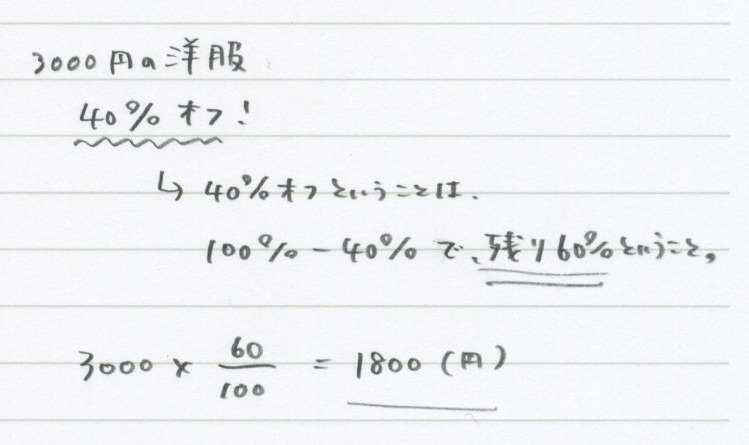 3000円の洋服
40%オフ!
↳ 40%オフということは、
100%-40%で、残り60%ということ。
3000 × 60/100 = 1800 (円)